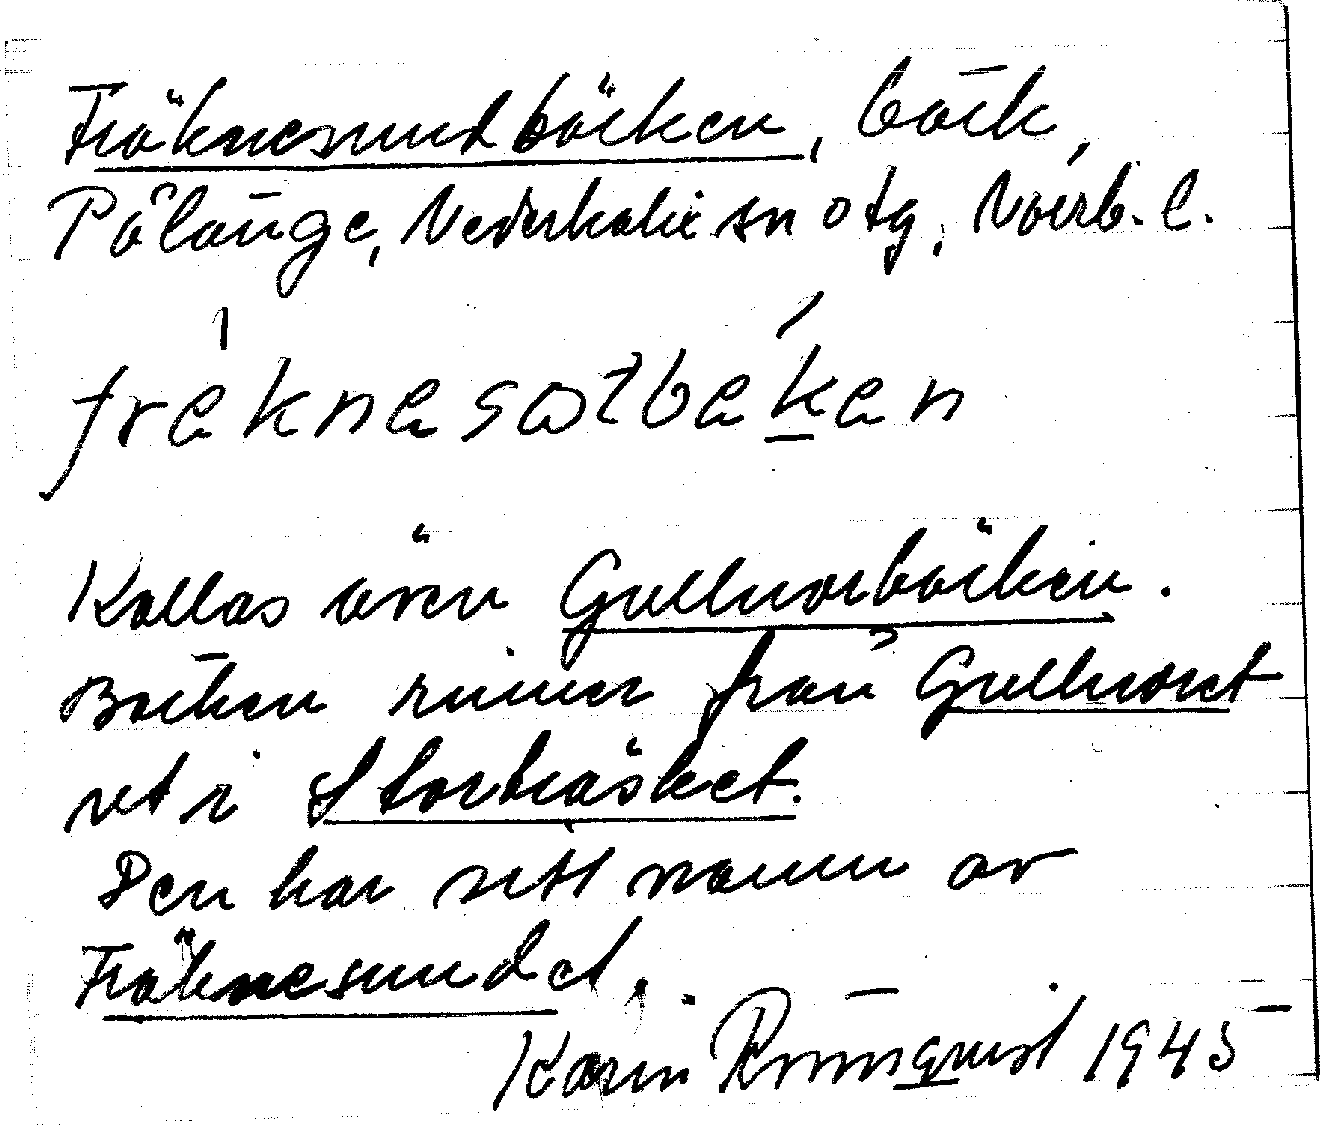 Fräknesundbäcken, bäck,
Pålänge, Nederkalix sn o tg, Norrb. l.
fræknæsɷtbækæn
Kallas även Gullnorbäcken.
Bäcken rinner från Gullnoret
ret i Storträsket.
Den har sitt namn av
Fräknesundet.
Karin Rönnqvist 1945